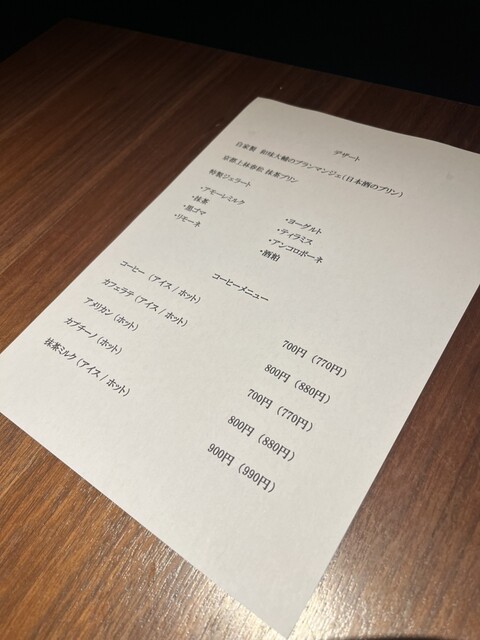 デザート
自家製 和味大輔のブランマンジェ（日本酒のプリン）
京都上林春松 抹茶プリン
特製ジェラート
・アモーレミルク ・ヨーグルト
・抹茶 ・ティラミス
・黒ゴマ ・アンコロポーネ
・リモーネ ・酒粕
コーヒーメニュー
コーヒー（アイス / ホット） 700円（770円）
カフェラテ（アイス / ホット） 800円（880円）
アメリカン（ホット） 700円（770円）
カプチーノ（ホット） 800円（880円）
抹茶ミルク（アイス / ホット） 900円（990円）